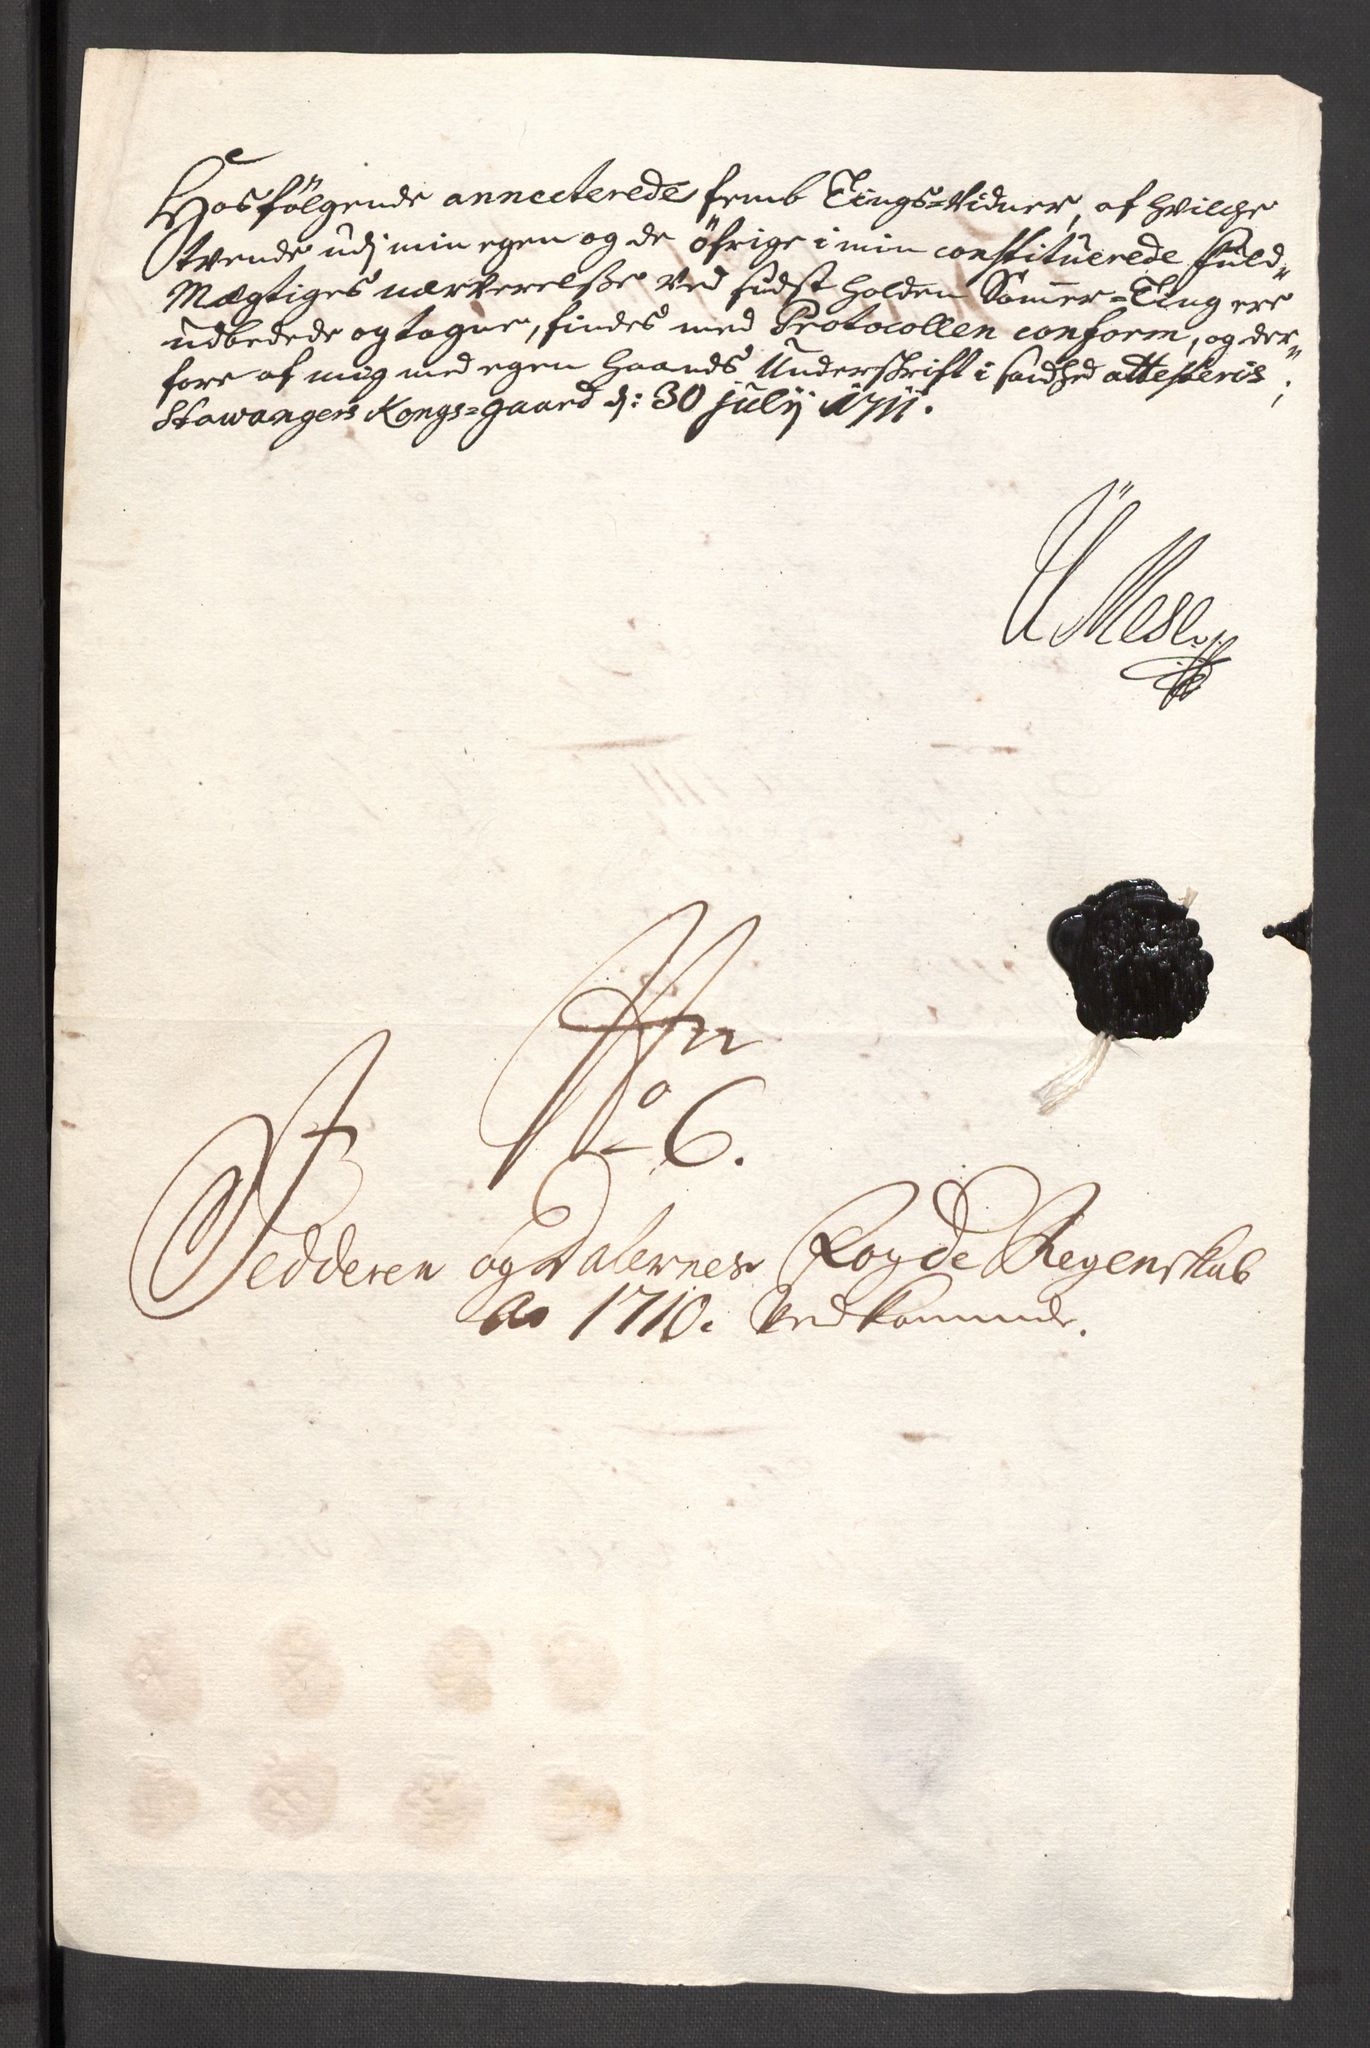 Hosfölgende annecterede femb Tings-Vidner, af hvilche
tvende udj min egen og de öfrige i min constituerede fuld„
Mægtiges nærverelsse ved sidst holden Somer-Ting ere
udbedede og tagne, findes med Protocollen conform, og der„
fore af mig med egen haands Underschrift i sandhed attesteris,
Stawangers Kongs-gaard d: 30 julij 1711.
No 6.
Jedderen og Dalernes Fogde Regenskab
Ao 1710. Vedkommende.